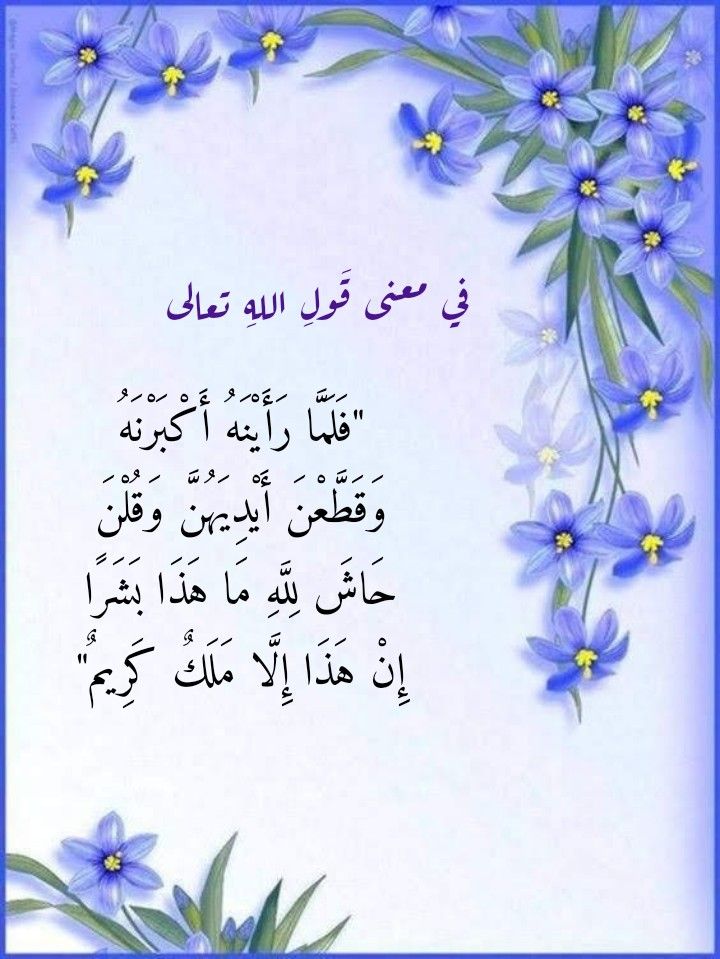 في معنى قَولِ اللهِ تعالى
"فَلَمَّا رَأَيْنَهُ أَكْبَرْنَهُ
وَقَطَّعْنَ أَيْدِيَهُنَّ وَقُلْنَ
حَاشَ لِلَّهِ مَا هَذَا بَشَرًا
إِنْ هَذَا إِلَّا مَلَكٌ كَرِيمٌ"